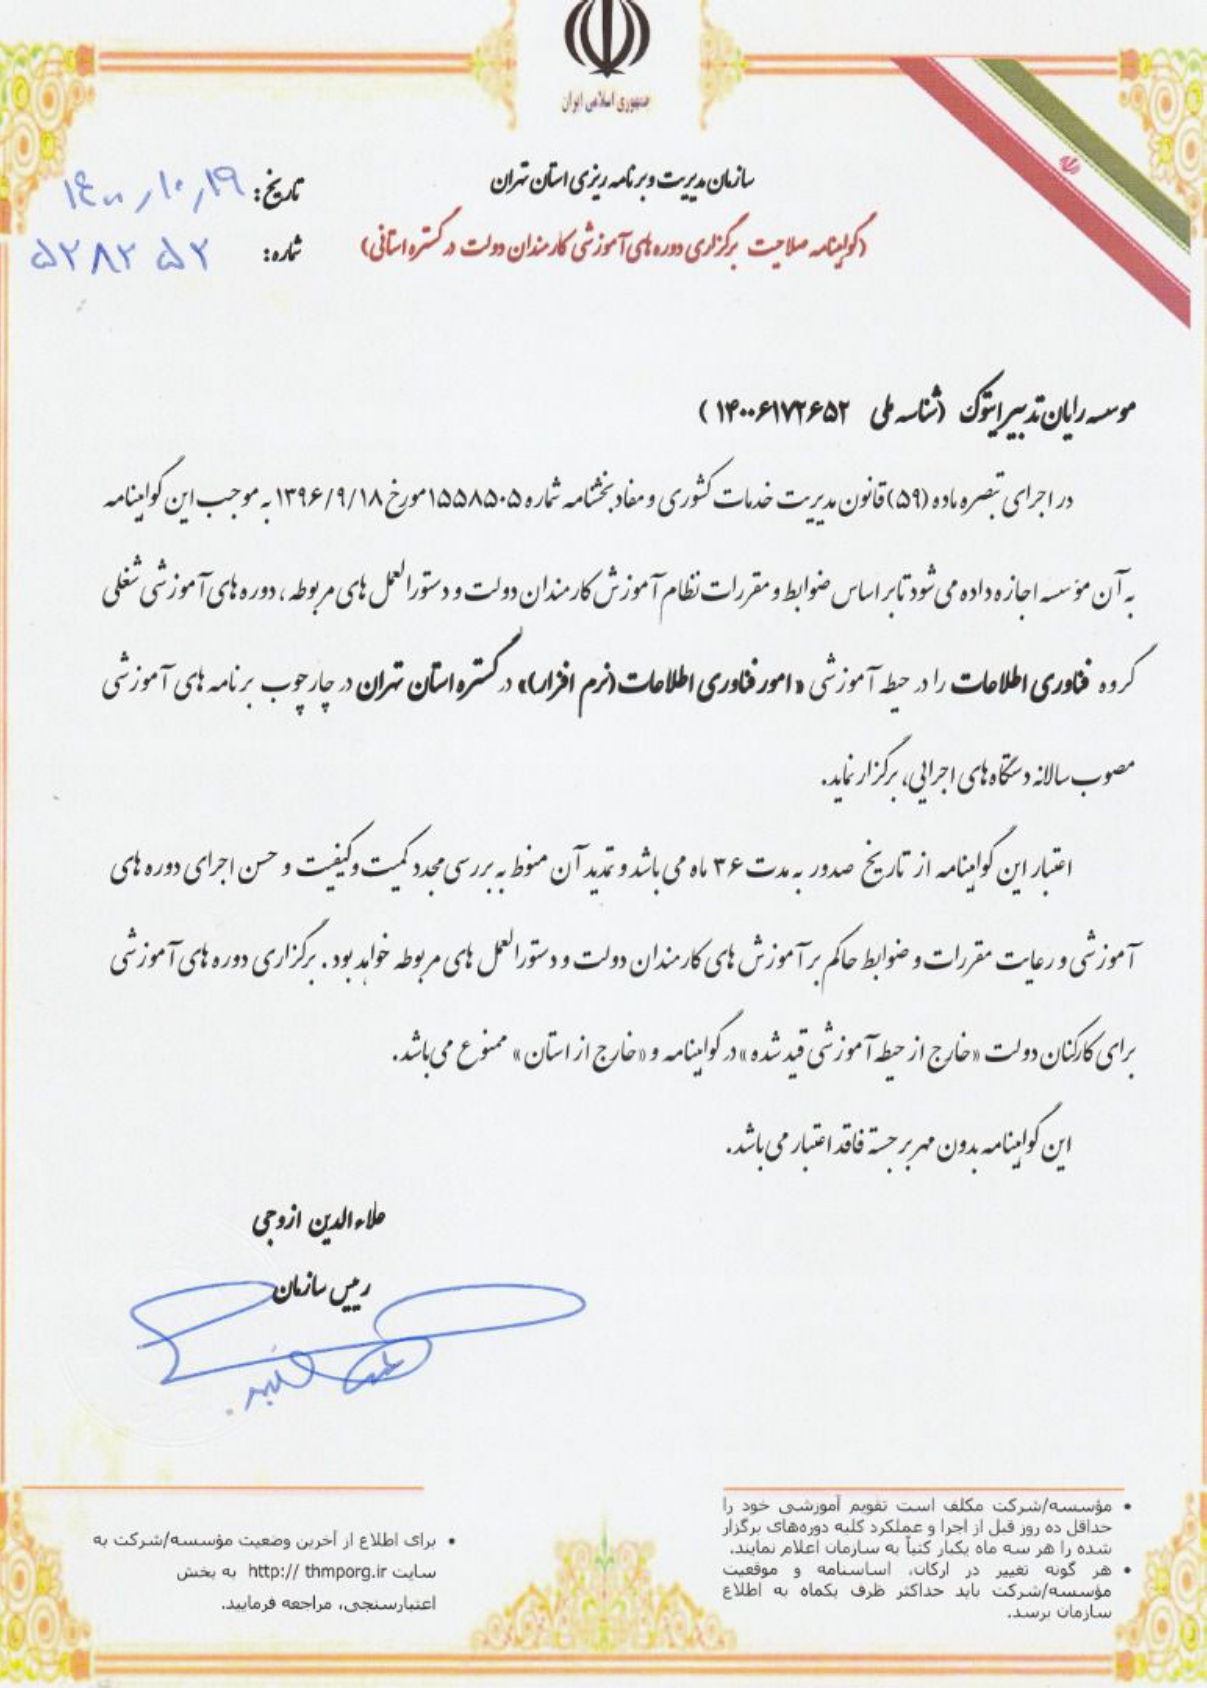 جمهوری اسلامی ایران
سازمان مدیریت و برنامه ریزی استان تهران
(گواهینامه صلاحیت برگزاری دوره های آموزشی کارمندان دولت در گستره استانی)
تاریخ: ۱۴۰۰/۱۰/۱۹
شماره: ۵۲۸۲۵۲
موسسه رایان تدبیر ایتوک (شناسه ملی ۱۴۰۰۶۱۷۲۶۵۲)
در اجرای تبصره ماده (۵۹) قانون مدیریت خدمات کشوری و مفاد بخشنامه شماره ۱۵۵۸۵۰۵ مورخ ۱۳۹۶/۹/۱۸ به موجب این گواهینامه
به آن مؤسسه اجازه داده می شود تا بر اساس ضوابط و مقررات نظام آموزش کارمندان دولت و دستورالعمل های مربوطه، دوره های آموزشی شغلی
گروه فناوری اطلاعات را در حیطه آموزشی «امور فناوری اطلاعات (نرم افزار)» در گستره استان تهران در چارچوب برنامه های آموزشی
مصوب سالانه دستگاه های اجرایی، برگزار نماید.
اعتبار این گواهینامه از تاریخ صدور به مدت ۳۶ ماه می باشد و تمدید آن منوط به بررسی مجدد کمیت و کیفیت و حسن اجرای دوره های
آموزشی و رعایت مقررات و ضوابط حاکم بر آموزش های کارمندان دولت و دستورالعمل های مربوطه خواهد بود. برگزاری دوره های آموزشی
برای کارکنان دولت «خارج از حیطه آموزشی قید شده» در گواهینامه و «خارج از استان» ممنوع می باشد.
این گواهینامه بدون مهر برجسته فاقد اعتبار می باشد.
علاءالدین ازوجی
رییس سازمان
• مؤسسه/شرکت مکلف است تقویم آموزشی خود را
حداقل ده روز قبل از اجرا و عملکرد کلیه دوره‌های برگزار
شده را هر سه ماه یکبار کتباً به سازمان اعلام نمایند.
• هر گونه تغییر در ارکان، اساسنامه و موقعیت
مؤسسه/شرکت باید حداکثر ظرف یکماه به اطلاع
سازمان برسد.
• برای اطلاع از آخرین وضعیت مؤسسه/شرکت به
سایت http:// thmporg.ir به بخش
اعتبارسنجی، مراجعه فرمایید.